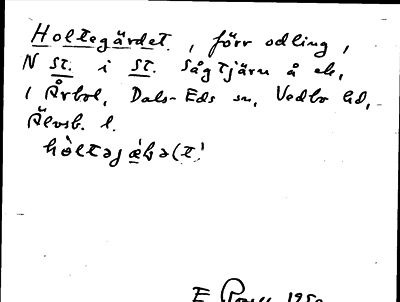 Holtegärdet, förr odling,
N St. i St. Sågtjärn å ek.
1 Årbol, Dals-Eds sn, Vedbo hd,
Älvsb. l.
E 1950